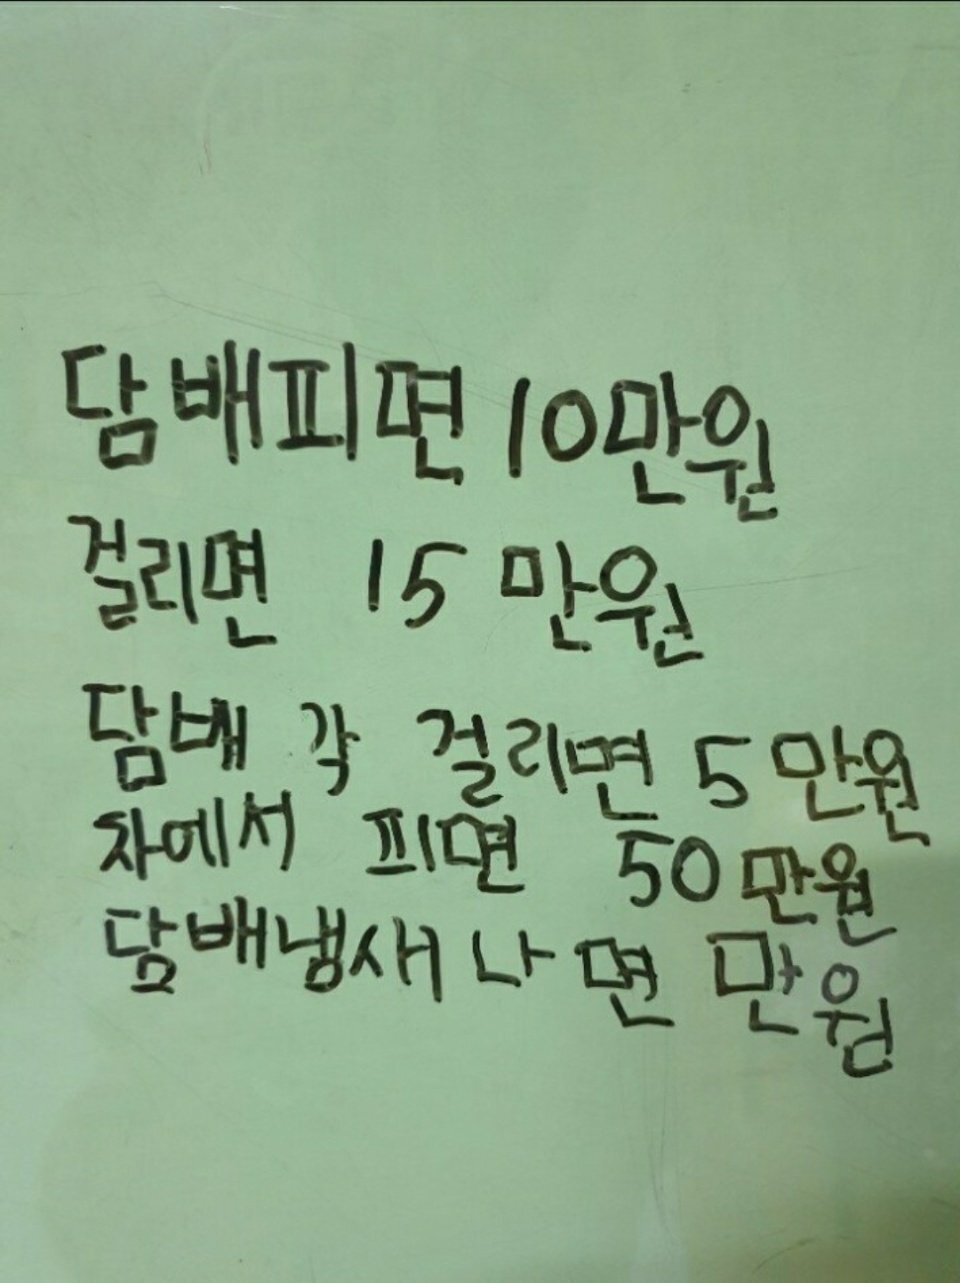 담배피면 10만원
걸리면 15만원
담배 각 걸리면 5만원
차에서 피면 50만원
담배냄새 나면 만원